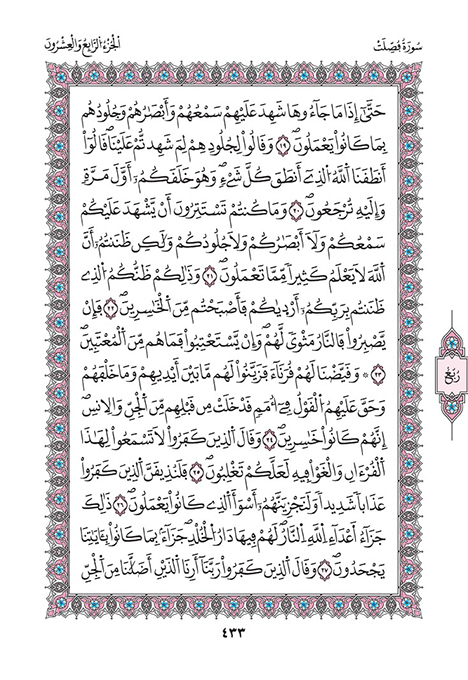 سُورَةُ فُصِّلَتْ
الجُزْءُ الرَّابِعُ وَالعِشْرُونَ
حَتَّىٰٓ إِذَا مَا جَآءُوهَا شَهِدَ عَلَيْهِمْ سَمْعُهُمْ وَأَبْصَٰرُهُمْ وَجُلُودُهُم
بِمَا كَانُواْ يَعْمَلُونَۖ ١٩ وَقَالُواْ لِجُلُودِهِمْ لِمَ شَهِدتُّمْ عَلَيْنَاۖ قَالُوٓاْ
أَنطَقَنَا اَللَّهُ اُلذِےٓ أَنطَقَ كُلَّ شَےْءٖۖ وَهُوَ خَلَقَكُمُۥٓ أَوَّلَ مَرَّةٖ
وَإِلَيْهِ تُرْجَعُونَۖ ٢٠ وَمَا كُنتُمْ تَسْتَتِرُونَ أَنْ يَّشْهَدَ عَلَيْكُمْ
سَمْعُكُمْ وَلَآ أَبْصَٰرُكُمْ وَلَا جُلُودُكُمْ وَلَٰكِن ظَنَنتُمُۥٓ أَنَّ
اَللَّهَ لَا يَعْلَمُ كَثِيراٗ مِّمَّا تَعْمَلُونَۖ ٢١ وَذَٰلِكُمْ ظَنُّكُمُ اُلذِے
ظَنَنتُم بِرَبِّكُمُۥٓ أَرْد۪يٰكُمْ فَأَصْبَحْتُم مِّنَ اَلْخَٰسِرِينَۖ ٢٢ فَإِنْ
يَّصْبِرُواْ فَالنَّارُ مَثْوىٗ لَّهُمْۖ وَإِنْ يَّسْتَعْتِبُواْ فَمَا هُم مِّنَ اَلْمُعْتَبِينَۖ
٢٣ ۞ وَقَيَّضْنَا لَهُمْ قُرَنَآءَ فَزَيَّنُواْ لَهُم مَّا بَيْنَ أَيْدِيهِمْ وَمَا خَلْفَهُمْ
وَحَقَّ عَلَيْهِمُ اُلْقَوْلُ فِےٓ أُمَمٖ قَدْ خَلَتْ مِن قَبْلِهِم مِّنَ اَلْجِنِّ وَالِانسِۖ
إِنَّهُمْ كَانُواْ خَٰسِرِينَۖ ٢٤ وَقَالَ اَلذِينَ كَفَرُواْ لَا تَسْمَعُواْ لِهَٰذَا
اَلْقُرْءَانِ وَالْغَوْاْ فِيهِ لَعَلَّكُمْ تَغْلِبُونَۖ ٢٥ فَلَنُذِيقَنَّ اَلذِينَ كَفَرُواْ
عَذَاباٗ شَدِيداٗ وَلَنَجْزِيَنَّهُمُۥٓ أَسْوَأَ اَلذِے كَانُواْ يَعْمَلُونَۖ ٢٦ ذَٰلِكَ
جَزَآءُ اَ۬عْدَآءِ اِللَّهِ اِلنَّارُۖ لَهُمْ فِيهَا دَارُ اُلْخُلْدِۖ جَزَآءَۢ بِمَا كَانُواْ بِـَٔايَٰتِنَا
يَجْحَدُونَۖ ٢٧ وَقَالَ اَلذِينَ كَفَرُواْ رَبَّنَآ أَرِنَا اَلذَيْنِ أَضَلَّٰنَا مِنَ اَلْجِنِّ
رُبُع
٤٣٣